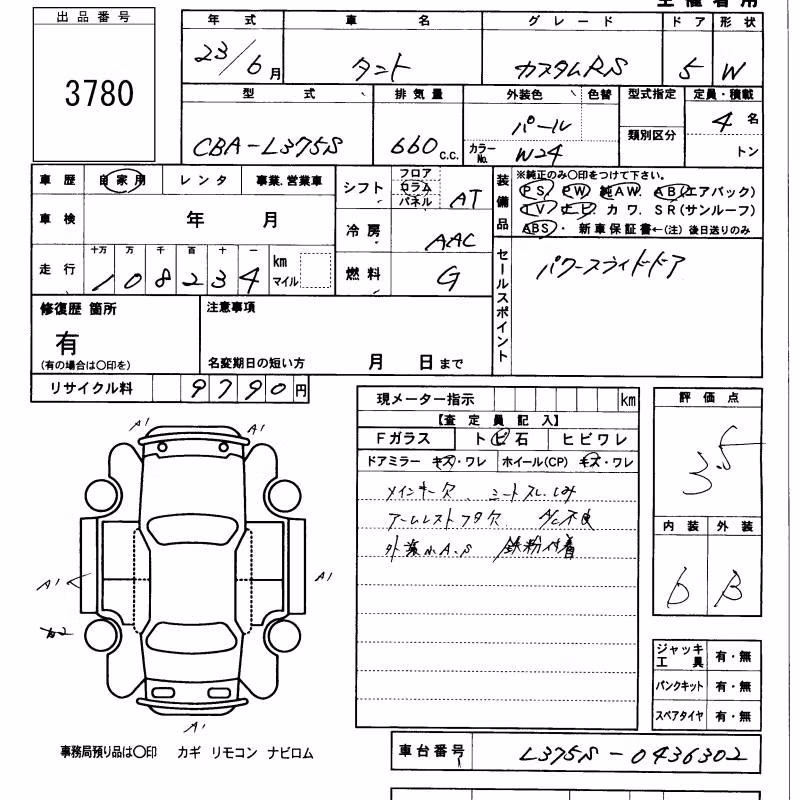 出品番号
3780
年式 車名 グレード ドア 形状
23/6月 タント カスタムRS 5 W
型式 排気量 外装色 色替 型式指定 定員・積載
CBA-L375S 660 c.c. パール カラーNo. W24 類別区分 4名 トン
車歴 自家用 レンタ 事業.営業車
シフト フロア コラム パネル AT
装備品 ※純正のみ○印をつけて下さい。
PS PW 純AW. AB(エアバック)
TV ナビ カワ. SR(サンルーフ)
ABS・ 新車保証書←(注)後日送りのみ
車検 年 月
冷房 AAC
走行 十万 万 千 百 十 一
108234 km マイル
燃料 G
セールスポイント
パワースライドドア
修復歴 箇所
有
(有の場合は○印を)
注意事項
名変期日の短い方 月 日まで
リサイクル料 9790円
現メーター指示 km
【査定員記入】
Fガラス トビ石 ヒビワレ
ドアミラー キズ・ワレ ホイール(CP) キズ・ワレ
メインキー欠 シートスレ.しみ
アームレストフタ欠 A/C不良
外装小A.S 鉄粉付着
評価点
3.5
内装 外装
D B
A1 A1
A1 A1
A2
A1
ジャッキ工具 有・無
パンクキット 有・無
スペアタイヤ 有・無
事務局預り品は○印 カギ リモコン ナビロム
車台番号 L375S-0436302